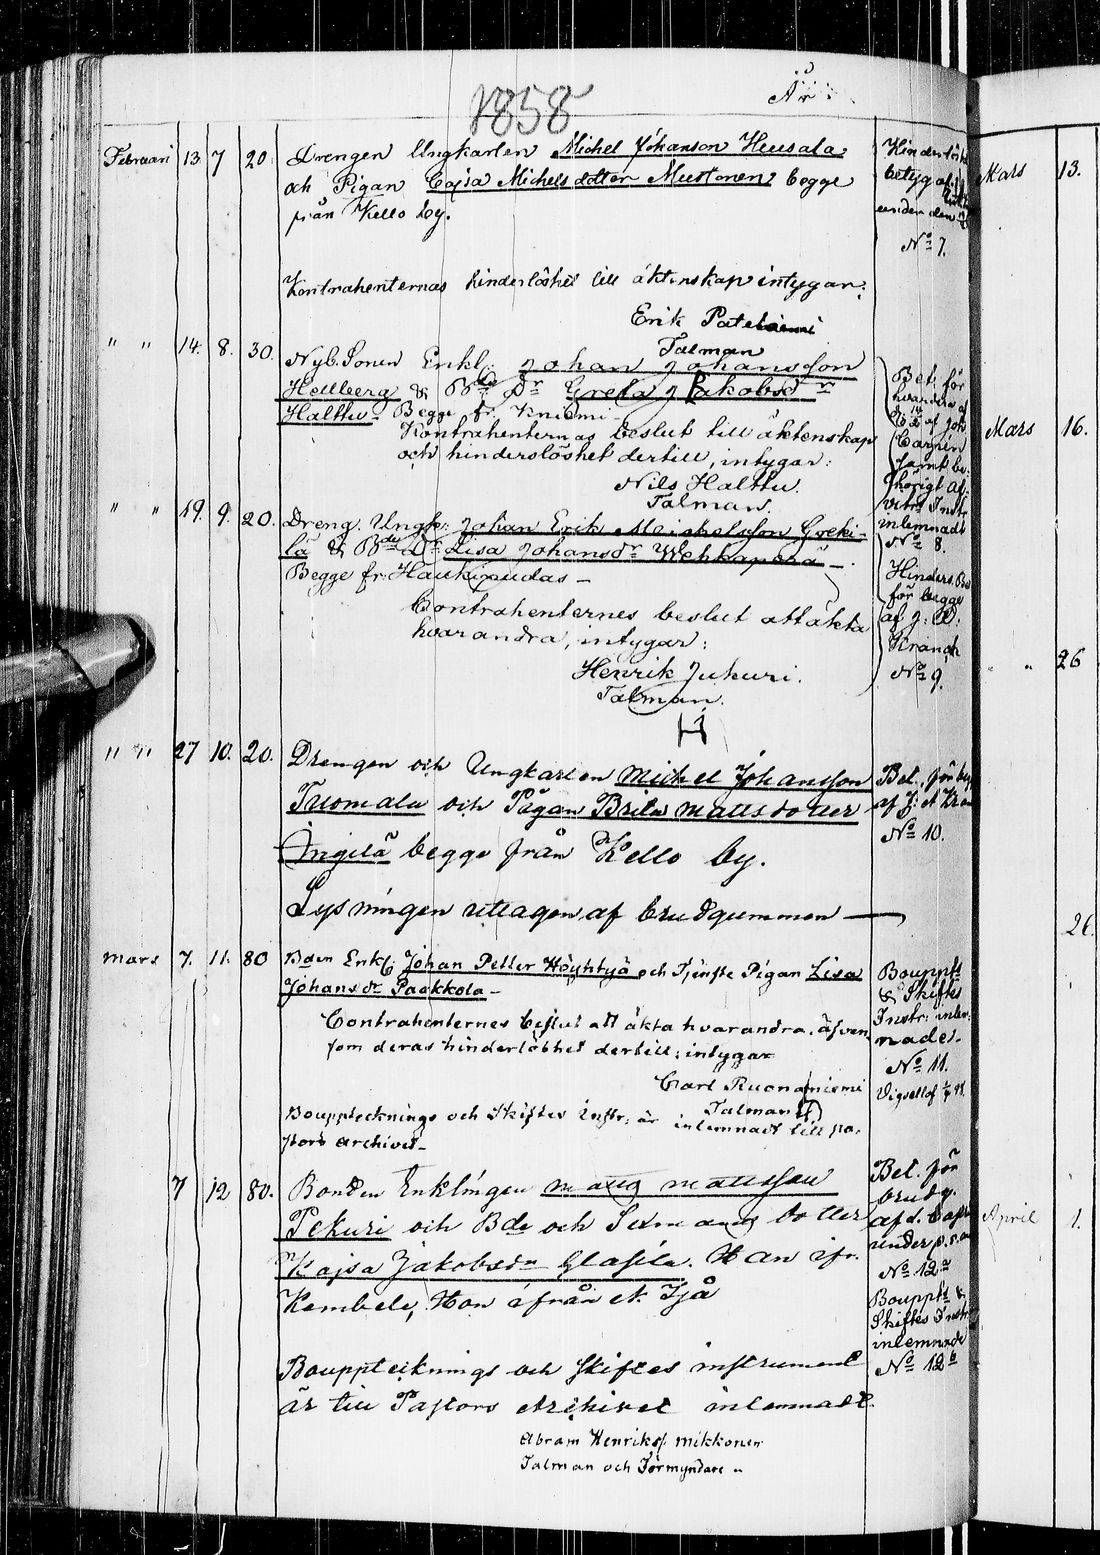 1858
År
Februari 13. 7 20. Drengen Ungkarlen Michel Johanson Heusala
och Pigan Cajsa Michelsdotter Mustonen begge
från Kello by.
Hinderlöshets
betyg af
under den
No 7.
Kontrahenternas hinderlöshet till äktenskap intygar:
Erik Pateniemi
Talman
" " 14. 8. 30. Nyb. Sonen Enkl. Johan Johansson
Hellberg & Bde Dr Greta Jakobsdr
Halttu - Begge fr. Kniemi -
Kontrahenternas beslut till äktenskap
och hinderslöshet dertill, intygar:
Nils Halttu.
Talman.
Bet. för
hvardera af
af Joh
Carpén
samt be-
hörigt af-
vittr. Instr
inlemnadt
No 8.
" " 19. 9. 20. Dreng. Ungk: Johan Erik Michelsson Gocki-
lä & Bde Dr Lisa Johansdr Wehkaperä -
Begge fr. Haukipudas -
Contrahenternes beslut att äkta
hvarandra, intygar:
Henrik Jukuri.
Talman.
Hinders. Be
för begge
af J: A:
Kranck
No 9.
" " 27 10. 20. Drengen och Ungkarlen Michel Johansson
Tuomala och Pigan Brita Mattsdotter
Ingilä begge från Kello by.
Lysningen uttagen af brudgummen —
Bet. för beg
af J: A Kran
No 10.
Mars 7. 11. 80 Bden Enkl: Johan Petter Höyhtyä och Tjenste Pigan Lisa
Johansdr Paakkola -
Contrahenternes beslut att äkta hvarandra, äfven
som deras hinderlöshet dertill; intygar
Carl Ruonaniemi
Talman
Boupptecknings och Skiftes instr: är inlemnadt till pa-
stors archivet -
Bouppts
& Skiftes
Instr: inlem-
nade.
No 11.
7 12 80. Bonden Enklingen Matts Mattsson
Pekuri och Bde och Ledmansdotter
Kajsa Jakobsdr Glasila. Han ifr.
Kembele, Hon ifrån A. Ijå
Bouppteknings och skiftes instrument
är till Pastors Archivet inlemnadt.
Abram Henrikss. Mikkonen
Talman och Förmyndare "
Bet. för
brudg.
af d. Castr
under p. s. an
No 12a
Bouppts &
Skiftes Instr
inlemnade
No 12b
Mars 13.
Mars 16.
" " 26
26.
April 1.